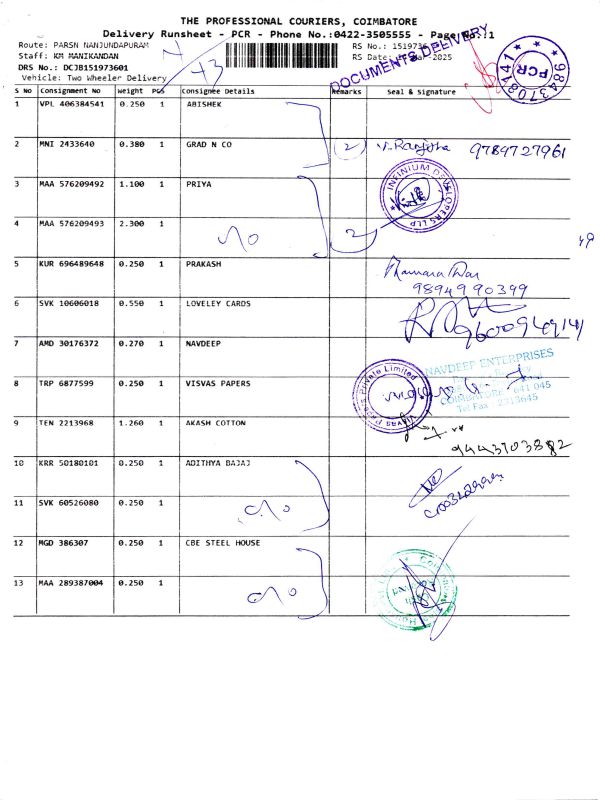 THE PROFESSIONAL COURIERS, COIMBATORE
Delivery Runsheet - PCR - Phone No.:0422-3505555 - Page No.:1
Route: PARSN NANJUNDAPURAM
RS No.: 1519736
Staff: KM MANIKANDAN
RS Date: -2025
DRS No.: DCJB151973601
Vehicle: Two Wheeler Delivery
DOCUMENTS DELIVERY
PCR
9843708141
43
S No Consignment No Weight PCS Consignee Details Remarks Seal & Signature
1 VPL 406384541 0.250 1 ABISHEK
2 MNI 2433640 0.380 1 GRAD N CO 2 9789727961
3 MAA 576209492 1.100 1 PRIYA
INFINIUM DEVELOPERS LLP
4 MAA 576209493 2.300 1 2
49
5 KUR 696489648 0.250 1 PRAKASH
9894990399
6 SVK 10606018 0.550 1 LOVELEY CARDS
7 AMD 30176372 0.270 1 NAVDEEP
NAVDEEP ENTERPRISES
COIMBATORE - 641 045
Tel Fax : 2313645
8 TRP 6877599 0.250 1 VISVAS PAPERS
Private Limited
9 TEN 2213968 1.260 1 AKASH COTTON
9443103882
10 KRR 50180101 0.250 1 ADITHYA BAJAJ
11 SVK 60526080 0.250 1
12 MGD 386307 0.250 1 CBE STEEL HOUSE
13 MAA 289387004 0.250 1